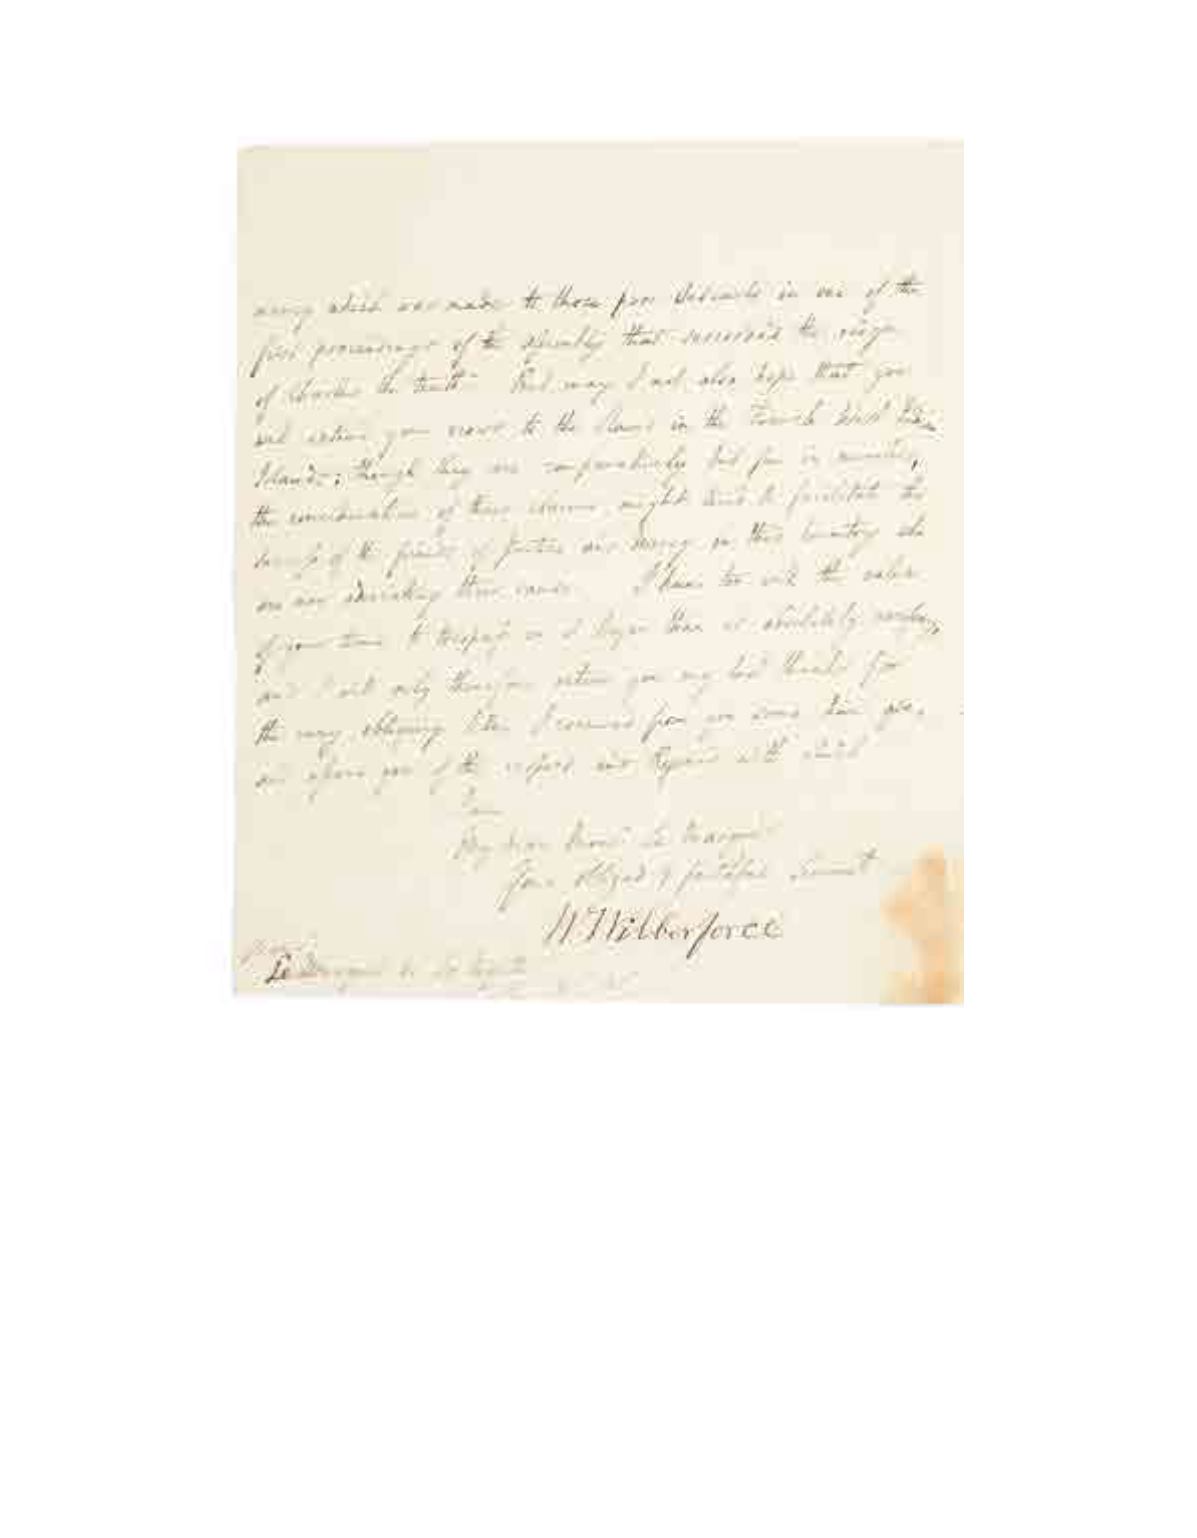 mercy which was made to those poor in one of the
first proceedings of the Assembly that succeeded the reign
of the tenth. But may I not also hope that you
will extend your views to the Slaves in the French West India
Islands; though they are comparatively but few in number,
the consideration of their claims might tend to facilitate the
success of the friends of Justice and Mercy in this Country who
are now advocating their cause. I know too well the value
of your time to trespass on it longer than is absolutely necessary,
and I will only therefore return you my best thanks for
the very obliging Letter I received from you some time ago,
and assure you of the respect and Esteem with which
I am
My dear Monsr. Le Marquis
Your obliged & faithful Servant
W Wilberforce
Le Marquis de La Fayette